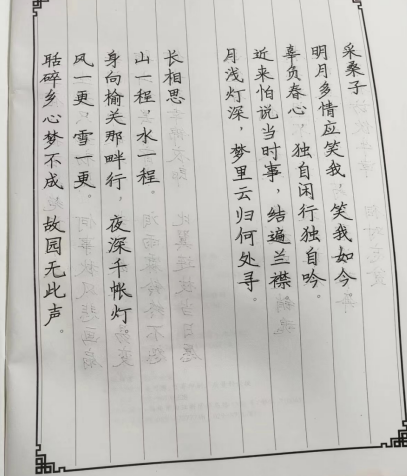 采桑子
明月多情应笑我，笑我如今。
辜负春心，独自闲行独自吟。
近来怕说当时事，结遍兰襟。
月浅灯深，梦里云归何处寻。
长相思
山一程，水一程。
身向榆关那畔行，夜深千帐灯。
风一更，雪一更。
聒碎乡心梦不成，故园无此声。